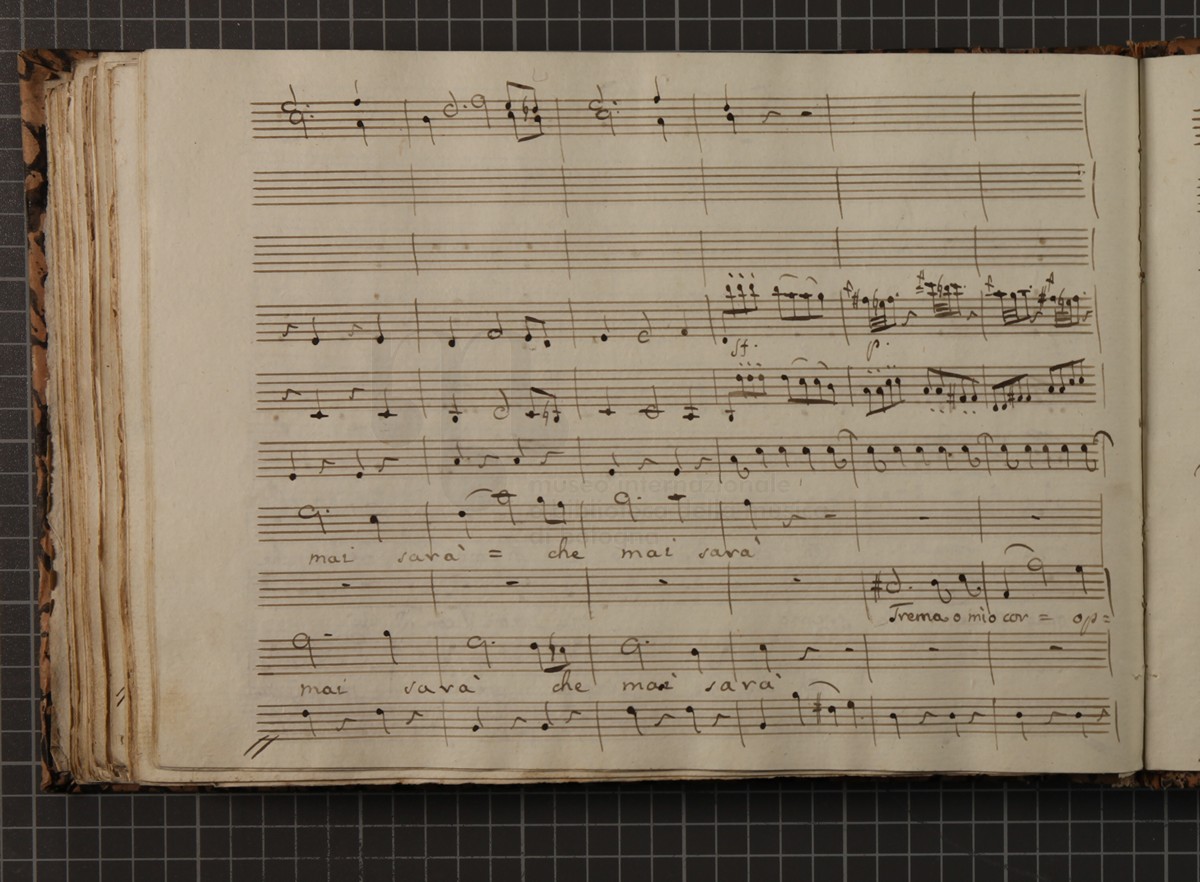 sf. p.
museo internazionale
mai sarà = che mai sarà
di bologna
Trema o mio cor = op=
mai sarà che mai sarà